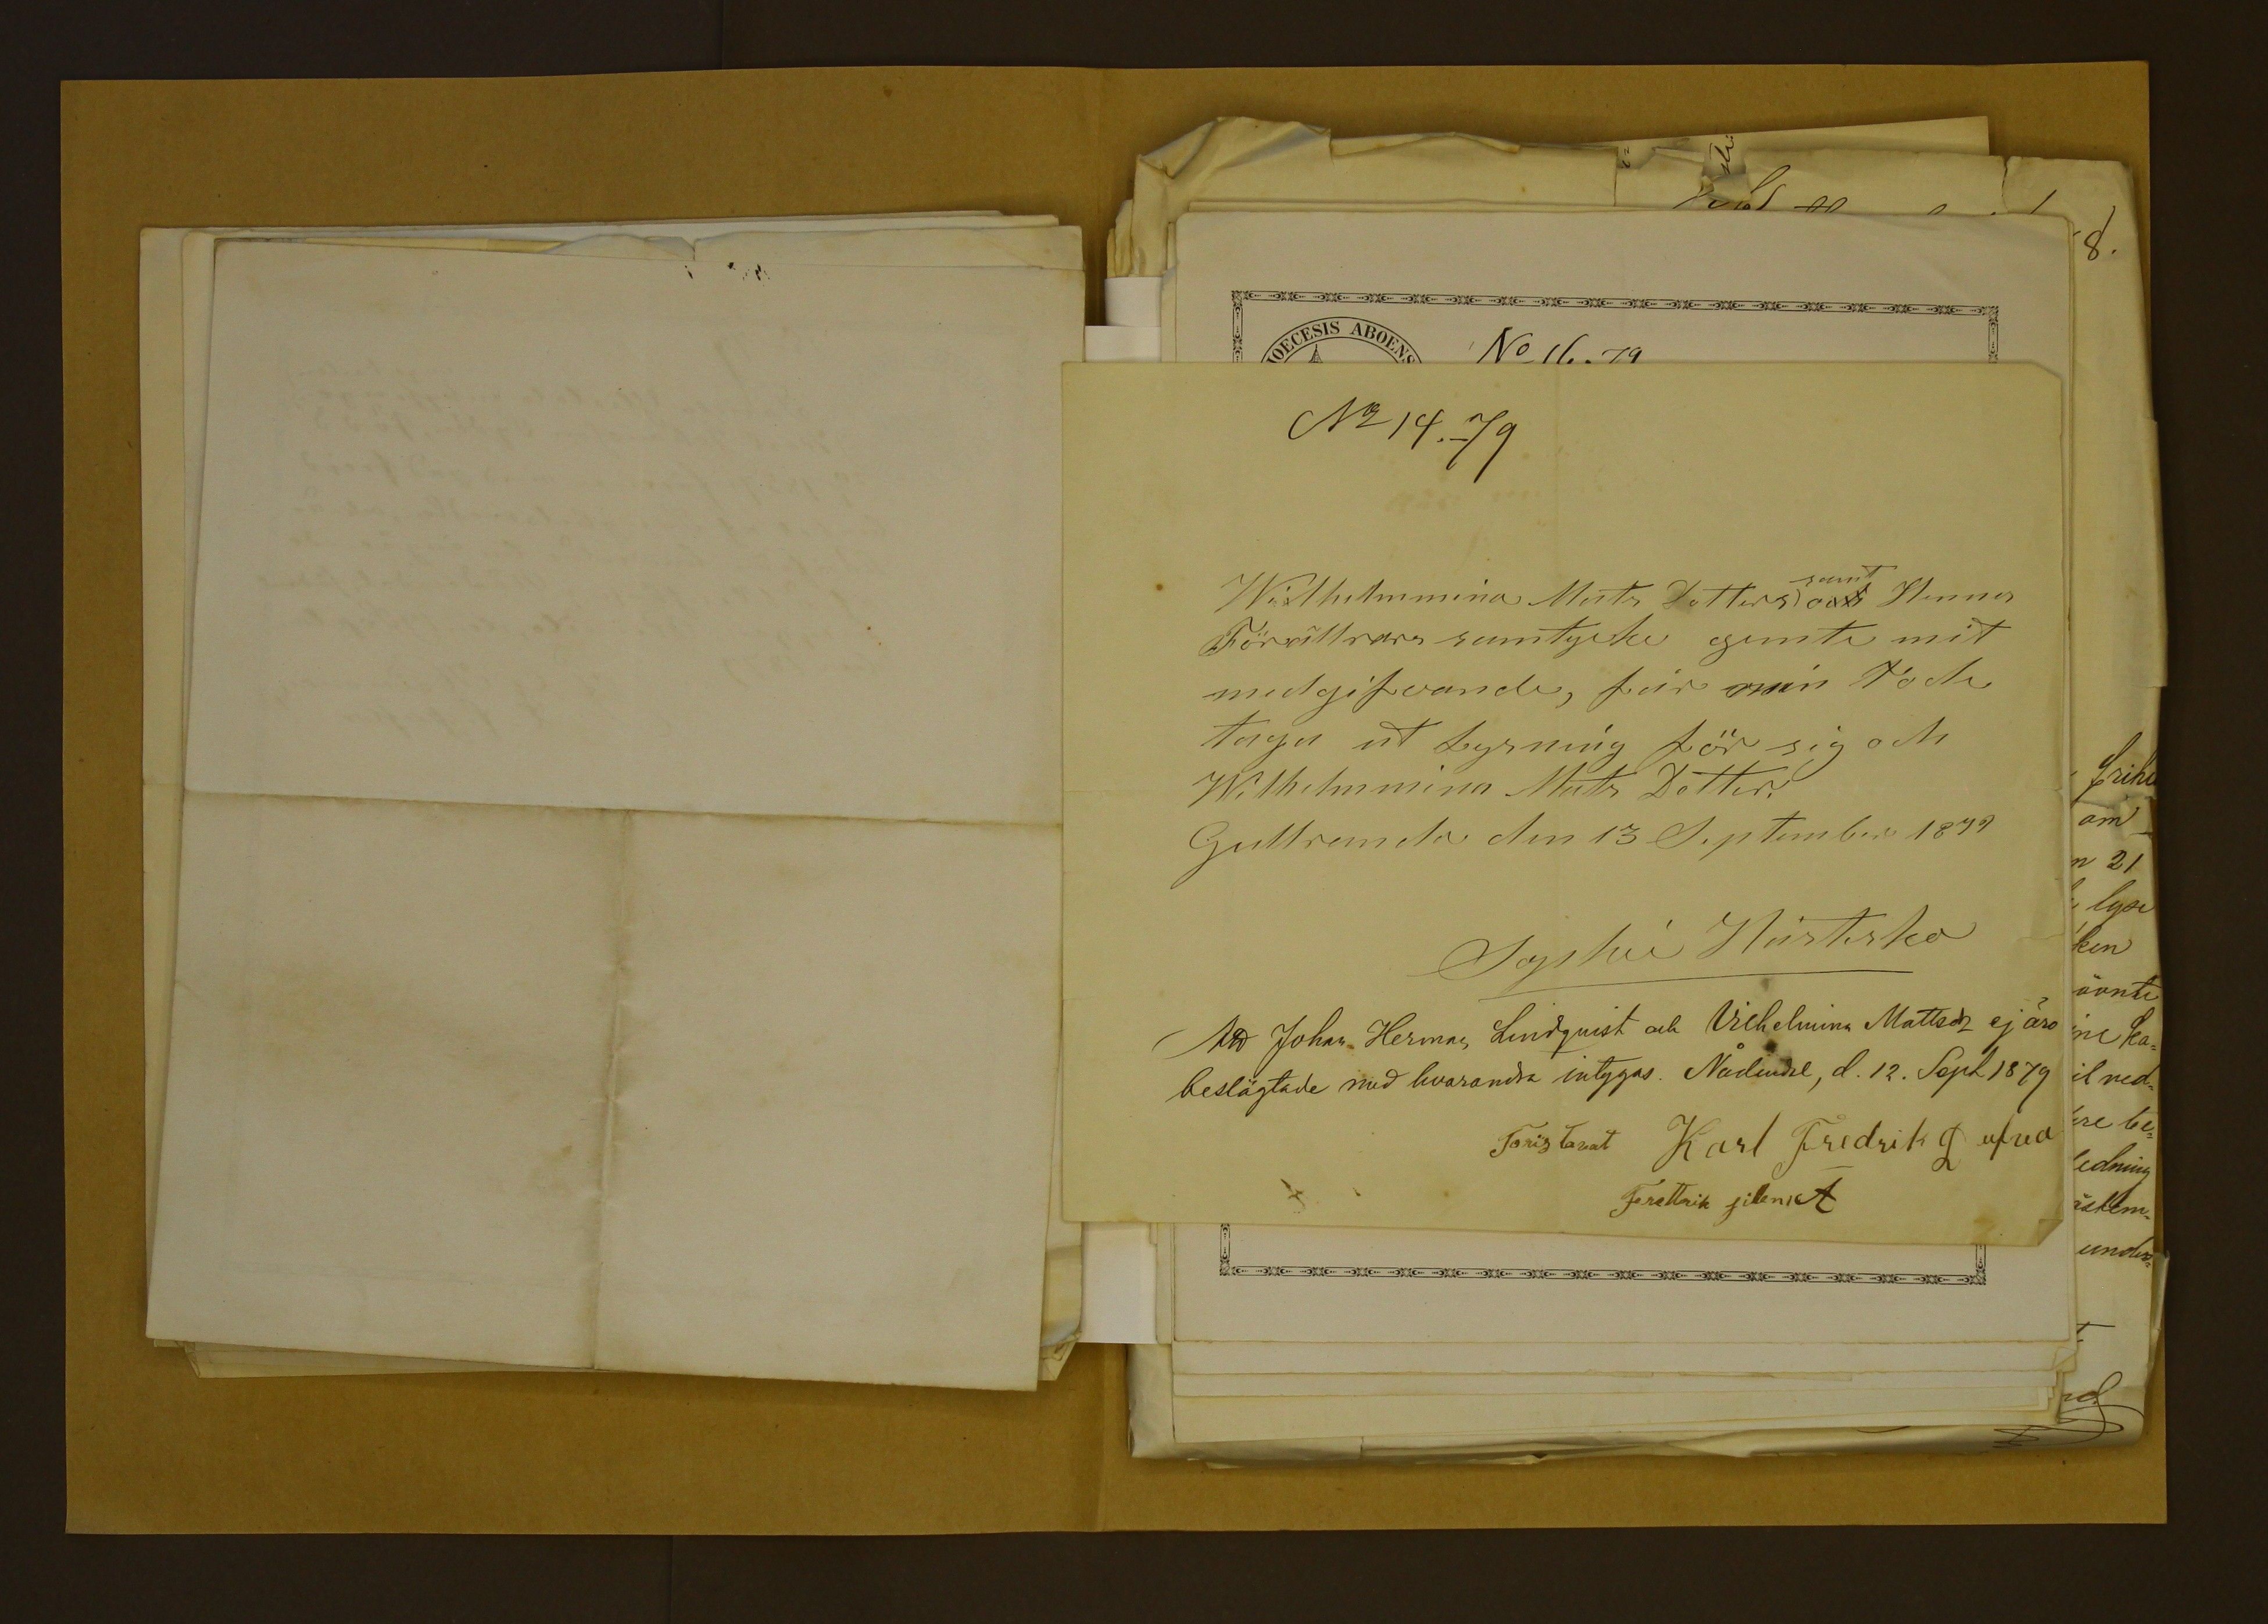 8.
DIOECESIS ABOENS
No 16.79
No 14.-79
Wilhelmmina Mats Dotters samt Hennes
Förälldrars samtycke gemte mit
medgifvande, får min Kock
taga ut Lysning för sig och
Wilhelmmina Mats Dotter.
Gulltranda den 13 September 1879
Sophie
Att Johan Herman Lindqvist och Vilhelmina Mattsdr ej äro
beslägtade med hvarandra intygas. Nådendal, d. 12. Sept 1879
Toristavat Karl Fredrik
om
n 21
lyse
ken
ine ka=
il ned=
ere be=
ledning
ästem=
under=